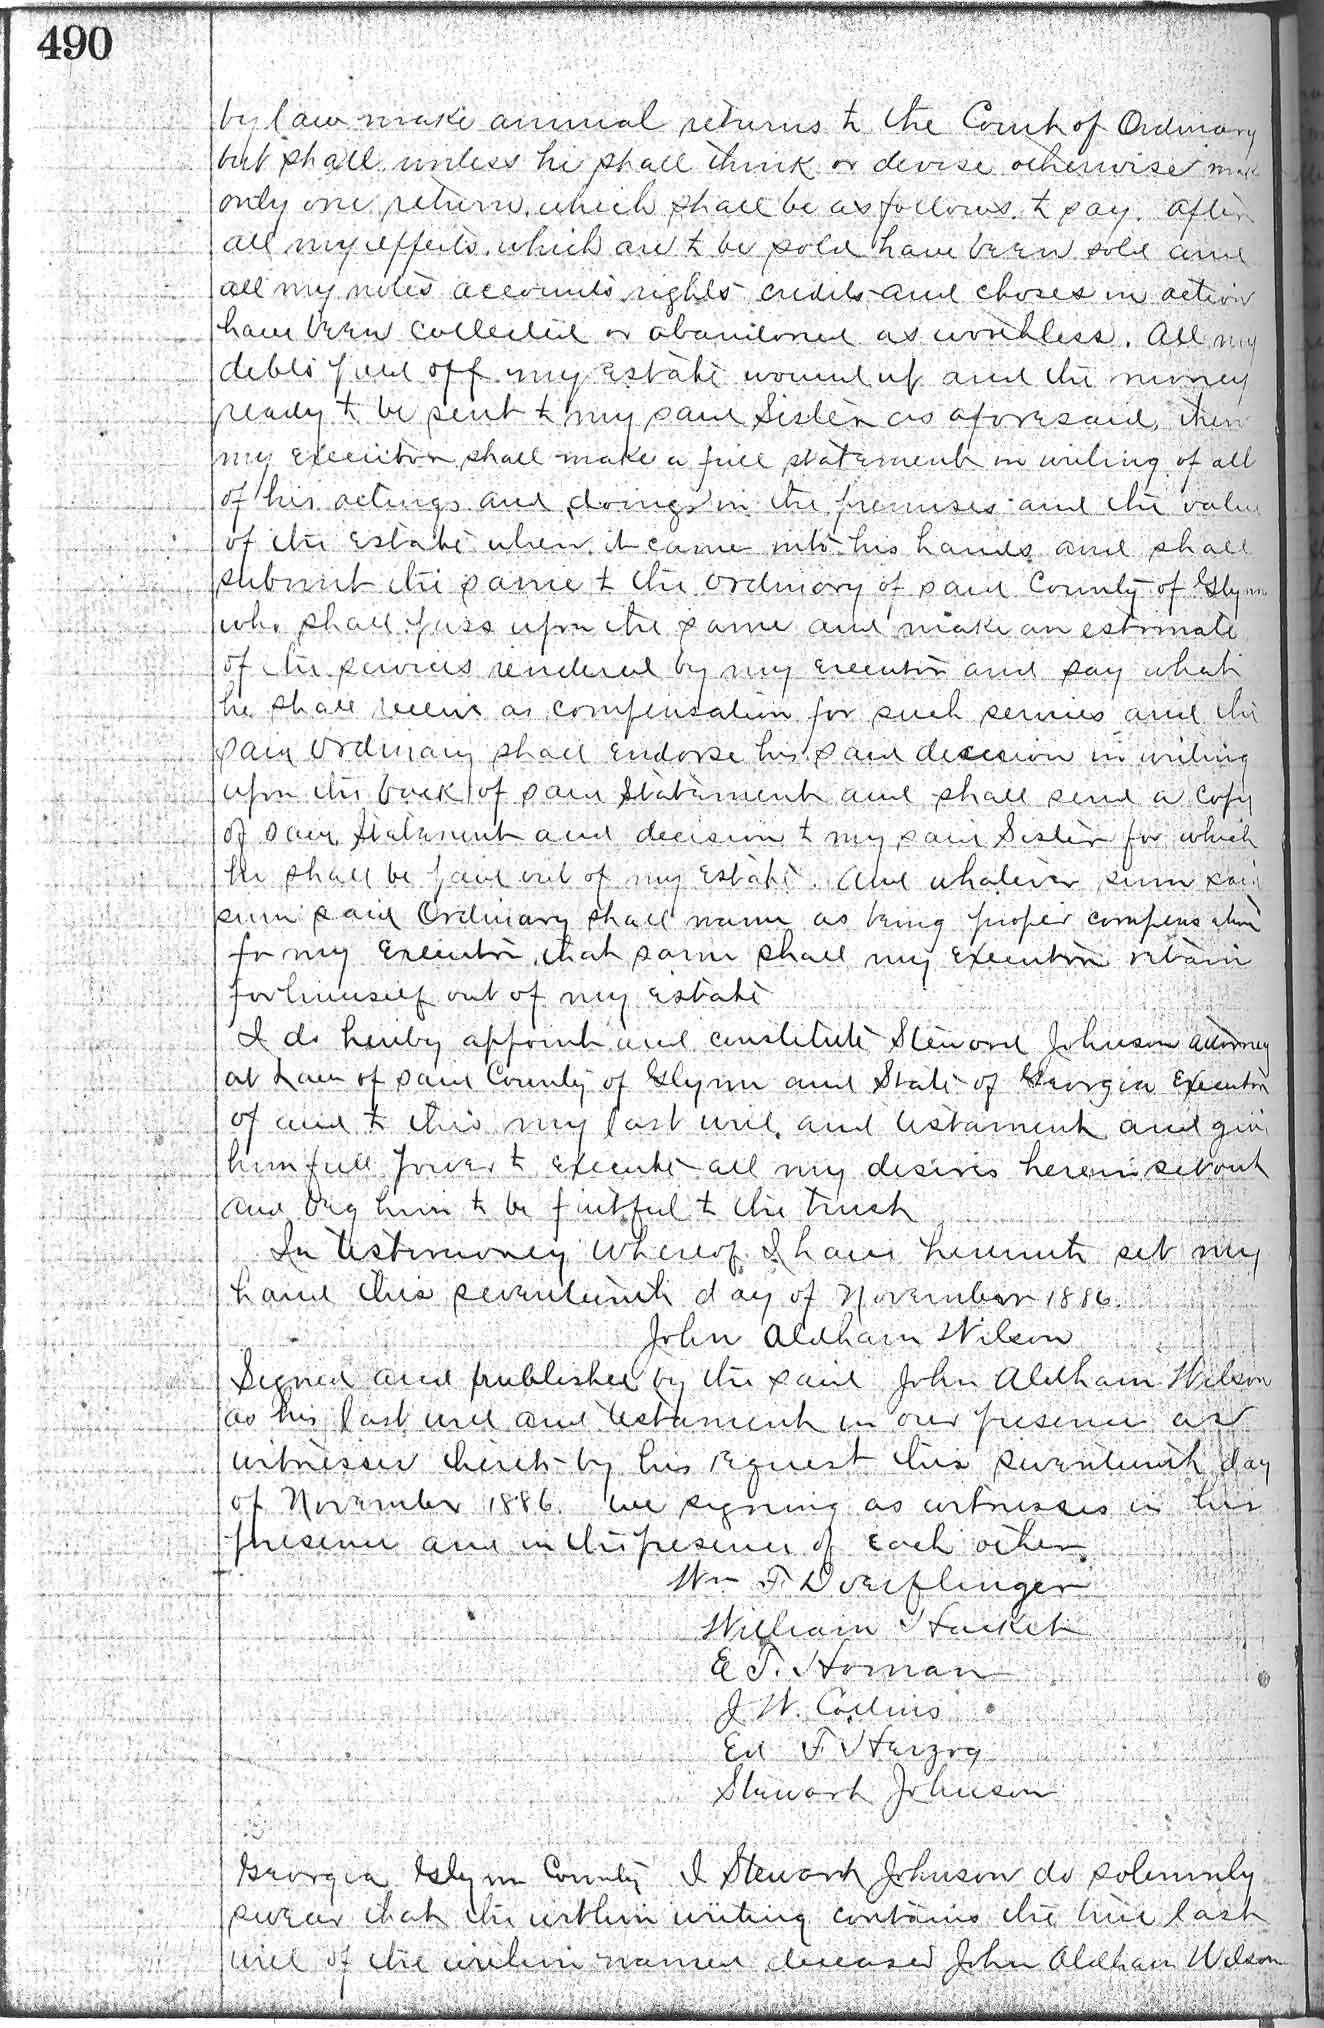 490
by law make annual returns to the Court of Ordinary
but shall unless he shall think or devise otherwise make
only one return. which shall be as follows. to say. After
all my effects. which are to be sold have been sold and
all my notes accounts rights credits and choses in action
have been collected or abandoned as worthless. All my
debts paid off my Estate wound up and the money
ready to be sent to my said Sister as aforesaid, then
my executor shall make a full statement in writing of all
of his actings and doings in the premises and the value
of the Estate when it came into his hands and shall
submit the same to the Ordinary of said County of Glynn
who shall pass upon the same and make an estimate
of the services rendered by my executor and say what
he shall receive as compensation for such services and the
said Ordinary shall endorse his said decision in writing
upon the back of said Statement and shall send a copy
of said Statement and decision to my said Sister for which
he shall be paid out of my Estate. And whatever sum said
sum said Ordinary shall name as being proper compensation
for my Executor, that same shall my Executor retain
for himself out of my estate
I do hereby appoint and constitute Steward Johnson attorney
at Law of said County of Glynn and State of Georgia Executor
of and to this my last will. and testament and give
him full power to execute all my desires herein set out
and beg him to be faitful to the trust
In testimoney Whereof I have hereunto set my
hand this seventeenth day of November 1886.
John Aldham Wilson
Signed and published by the said John Aldham Wilson
as his last will and testament in our presence as
witnesses thereto by his request this seventeenth day
of November 1886. we signing as witnesses in his
presence and in the presence of each other.
Wm F. Doerflinger
William Hackett
E T. Homan
J W. Collins
Ed F. Herzog
Stewart Johnson
Georgia Glynn County I Stewart Johnson do solemnly
swear that the within writing contains the true last
will of the within named deceased John Aldham Wilson